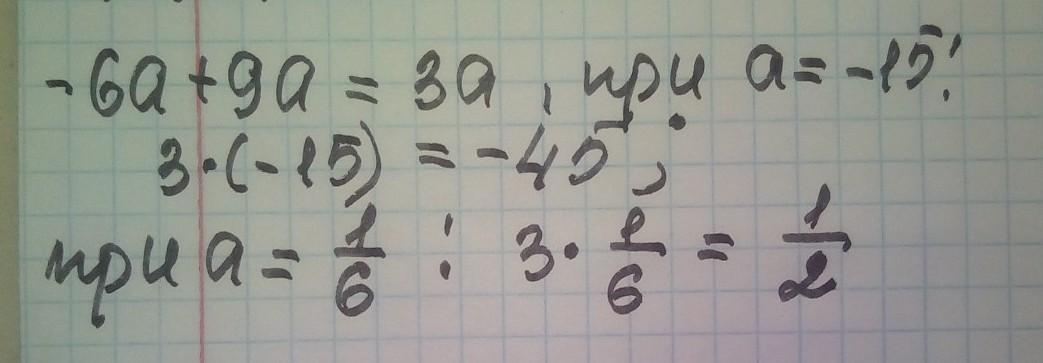 -6a+9a = 3a, при a = -15:
3·(-15) = -45;
при a = 1/6 : 3· 1/6 = 1/2